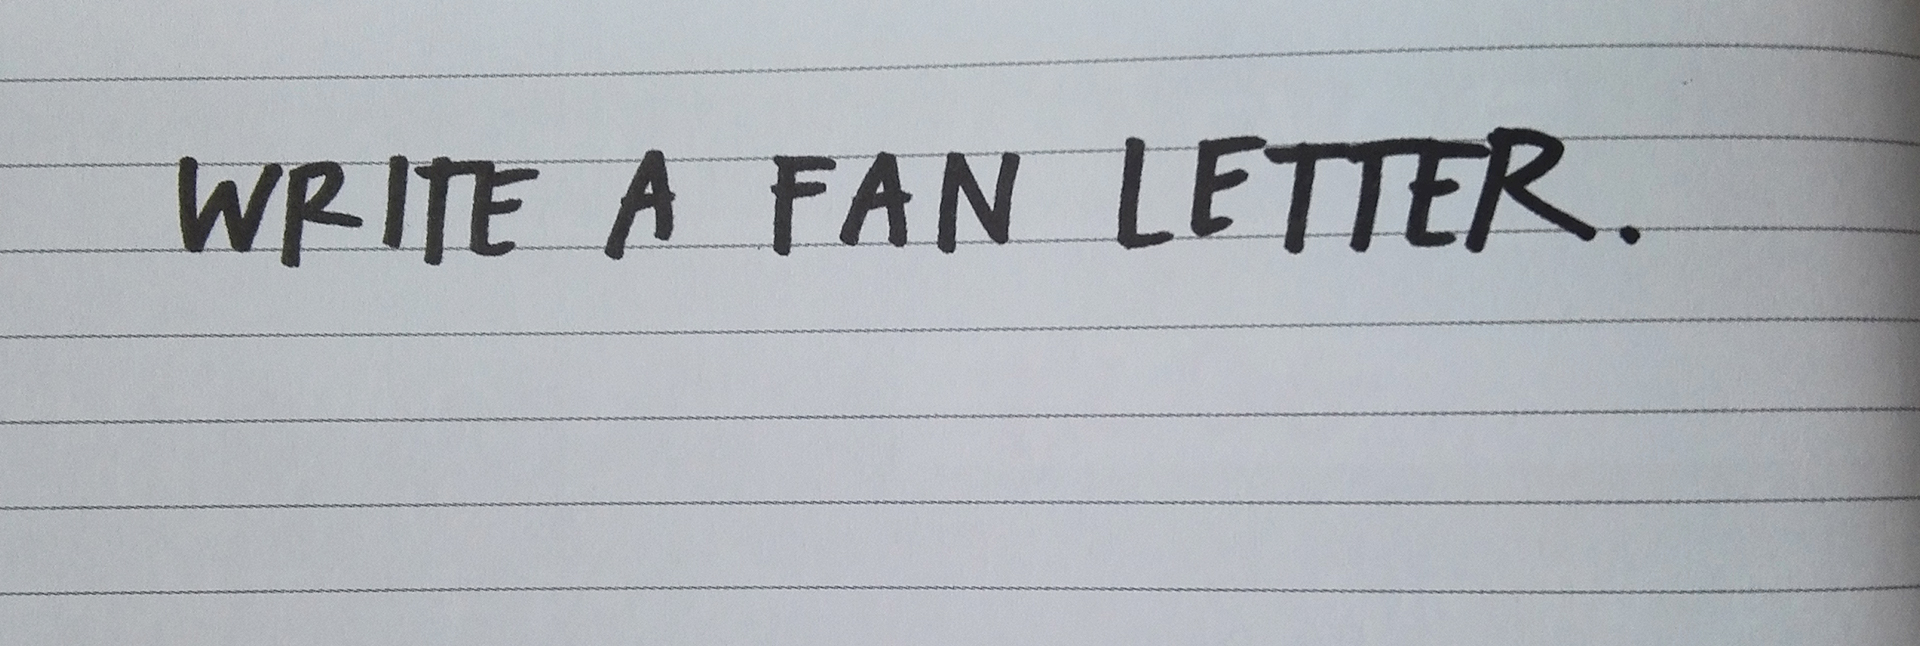 WRITE A FAN LETTER.